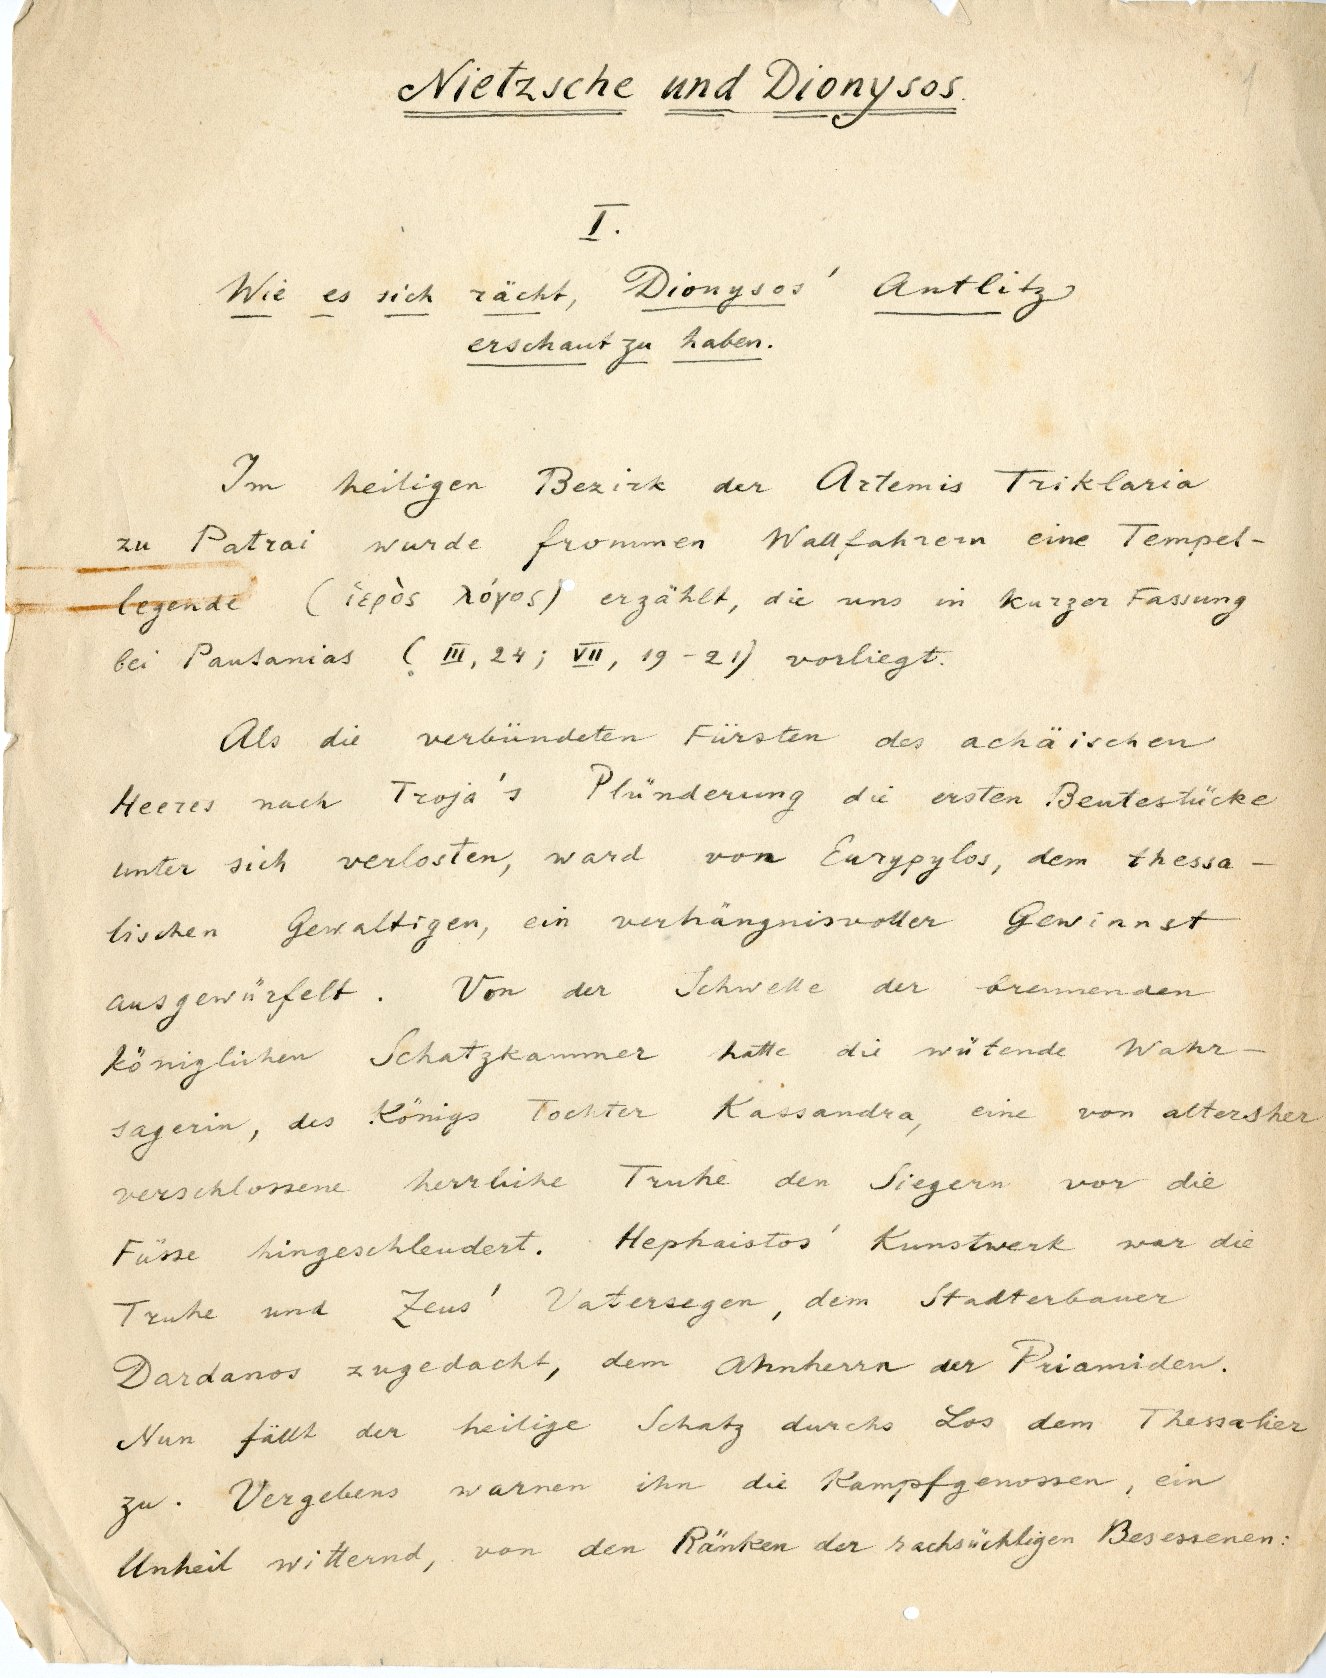 1
Nietzsche und Dionysos.
I.
Wie es sich rächt, Dionysos' Antlitz
erschaut zu haben.
Im heiligen Bezirk der Artemis Triklaria
zu Patrai wurde frommen Wallfahrern eine Tempel-
legende (ἱερὸς λόγος) erzählt, die uns in kurzer Fassung
bei Pausanias (III, 24; VII, 19-21) vorliegt.
Als die verbündeten Fürsten des achäischen
Heeres nach Troja's Plünderung die ersten Beutestücke
unter sich verlosten, ward von Eurypylos, dem thessa-
lischen Gewaltigen, ein verhängnisvoller Gewinnst
ausgewürfelt. Von der Schwelle der brennenden
königlichen Schatzkammer hatte die wütende Wahr-
sagerin, des Königs Tochter Kassandra, eine von altersher
verschlossene herrliche Truhe den Siegern vor die
Füsse hingeschleudert. Hephaistos' Kunstwerk war die
Truhe und Zeus' Vatersegen, dem Stadterbauer
Dardanos zugedacht, dem Ahnherrn der Priamiden.
Nun fällt der heilige Schatz durchs Los dem Thessalier
zu. Vergebens warnen ihn die Kampfgenossen, ein
Unheil witternd, von den Ränken der rachsüchtigen Besessenen: